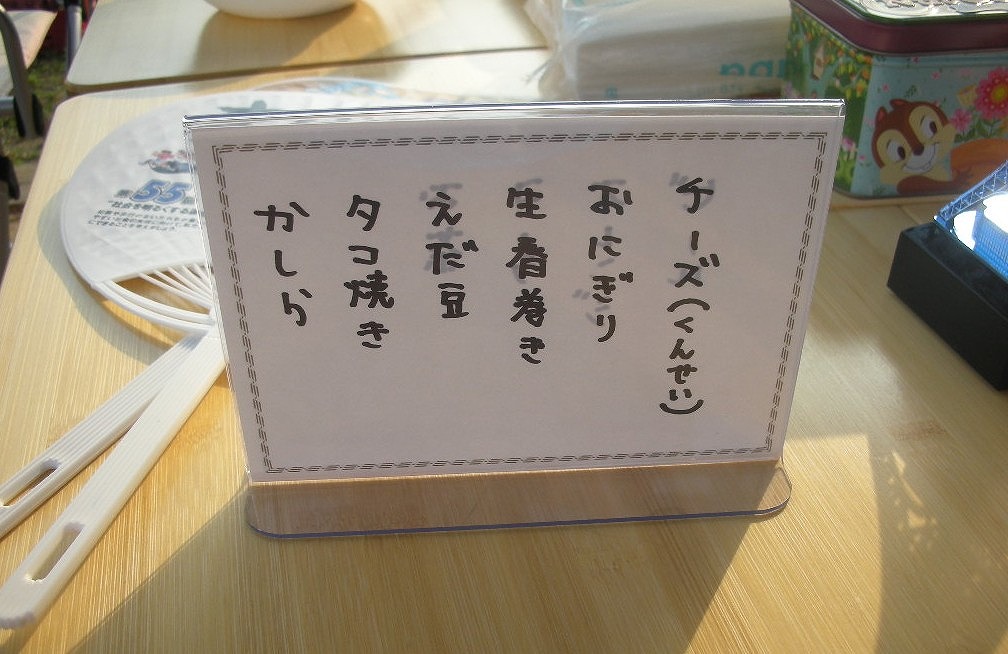 チーズ(くんせい)
おにぎり
生春巻き
えだ豆
タコ焼き
かしら
55